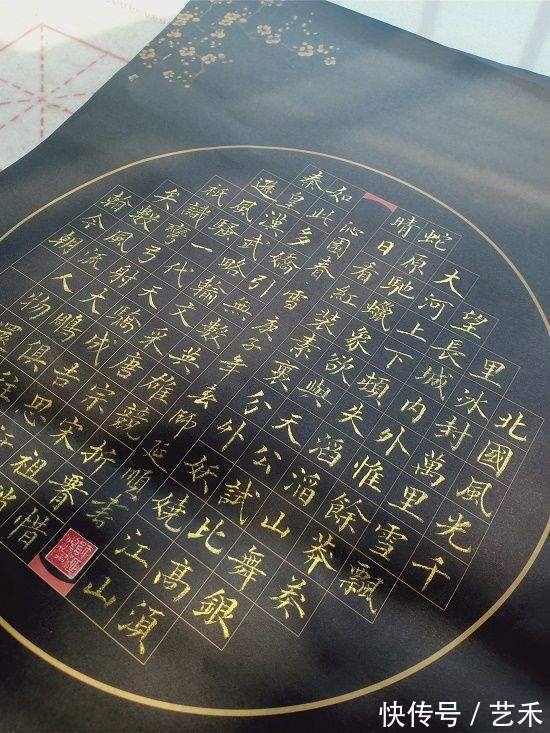 北國風光千
里冰封萬里雪飄
望長城內外惟餘莽莽
大河上下頓失滔滔山舞銀
蛇原馳蠟象欲與天公試比高須
晴日看紅裝素裹分外妖嬈江山
沁園春雪庚子年玄師延順書
如此多嬌引無數英雄競折腰惜
秦皇漢武略輸文采唐宗宋祖稍
遜風騷一代天驕成吉思汗
祇識彎弓射大鵰俱往
矣數風流人物還
看今朝
快传号 / 艺禾